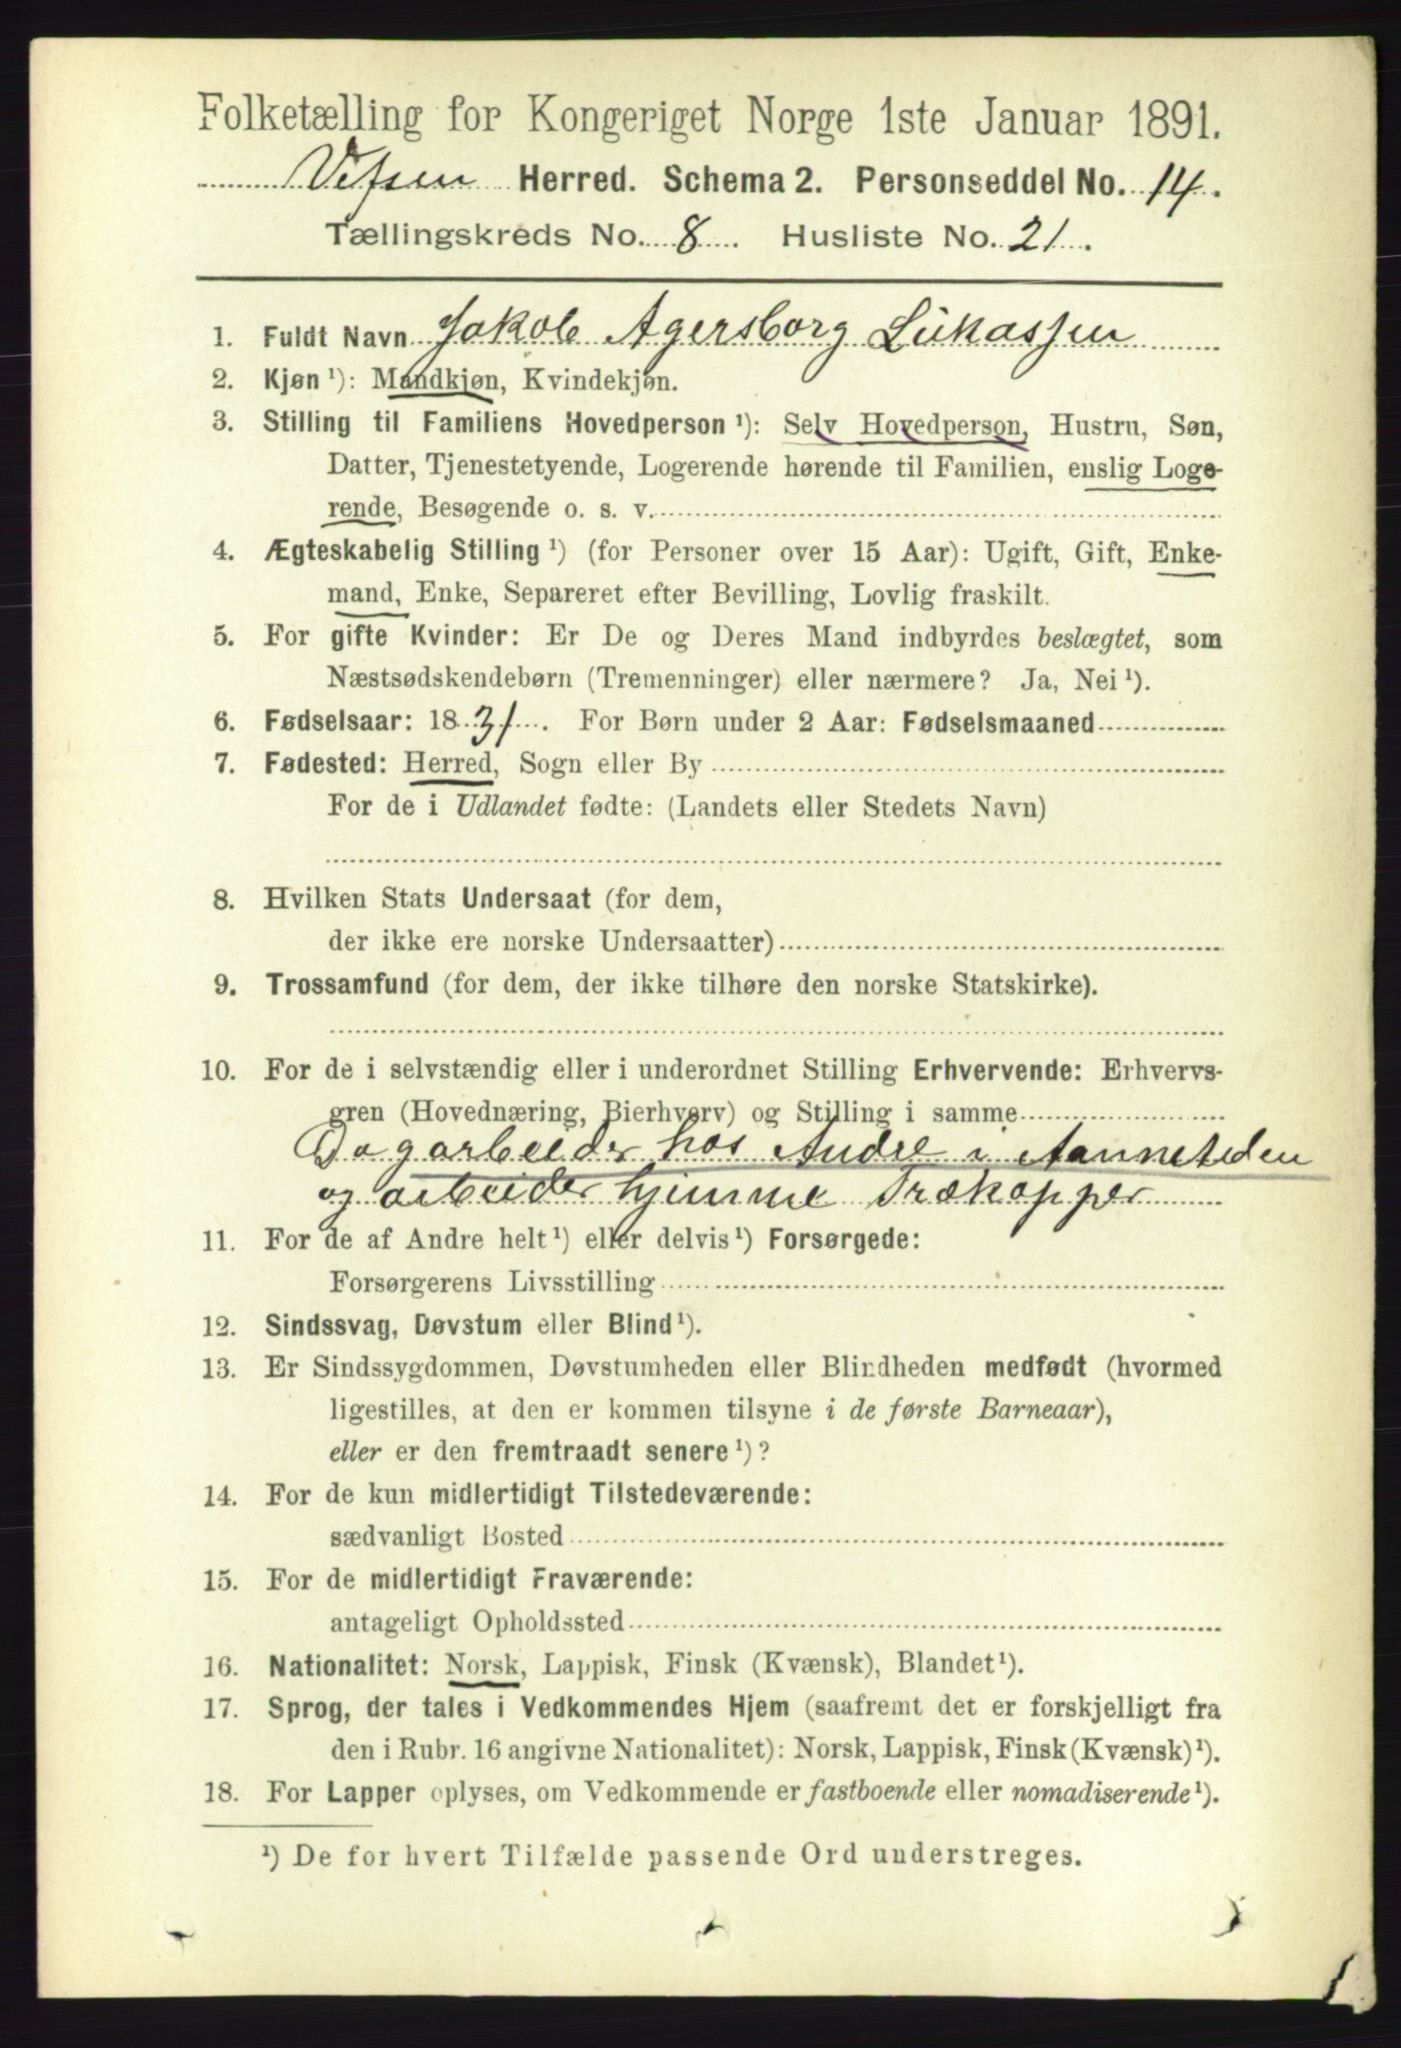 Folketælling for Kongeriget Norge 1ste Januar 1891.
Vefsen Herred. Schema 2. Personseddel No. 14.
Tællingskreds No. 8. Husliste No. 21.
1. Fuldt Navn Jakob Agersborg Lukassen
2. Kjøn ¹): Mandkjøn, Kvindekjøn.
3. Stilling til Familiens Hovedperson ¹): Selv Hovedperson, Hustru, Søn,
Datter, Tjenestetyende, Logerende hørende til Familien, enslig Loge-
rende, Besøgende o. s. v.
4. Ægteskabelig Stilling ¹) (for Personer over 15 Aar): Ugift, Gift, Enke-
mand, Enke, Separeret efter Bevilling, Lovlig fraskilt.
5. For gifte Kvinder: Er De og Deres Mand indbyrdes beslægtet, som
Næstsødskendebørn (Tremenninger) eller nærmere? Ja, Nei ¹).
6. Fødselsaar: 1831. For Børn under 2 Aar: Fødselsmaaned
7. Fødested: Herred, Sogn eller By
For de i Udlandet fødte: (Landets eller Stedets Navn)
8. Hvilken Stats Undersaat (for dem,
der ikke ere norske Undersaatter)
9. Trossamfund (for dem, der ikke tilhøre den norske Statskirke).
10. For de i selvstændig eller i underordnet Stilling Erhvervende: Erhvervs-
gren (Hovednæring, Bierhverv) og Stilling i samme
Dagarbeider hos Andre i Aannetiden
og arbeider hjemme Trækopper
11. For de af Andre helt ¹) eller delvis ¹) Forsørgede:
Forsørgerens Livsstilling
12. Sindssvag, Døvstum eller Blind ¹).
13. Er Sindssygdommen, Døvstumheden eller Blindheden medfødt (hvormed
ligestilles, at den er kommen tilsyne i de første Barneaar),
eller er den fremtraadt senere ¹)?
14. For de kun midlertidigt Tilstedeværende:
sædvanligt Bosted
15. For de midlertidigt Fraværende:
antageligt Opholdssted
16. Nationalitet: Norsk, Lappisk, Finsk (Kvænsk), Blandet ¹).
17. Sprog, der tales i Vedkommendes Hjem (saafremt det er forskjelligt fra
den i Rubr. 16 angivne Nationalitet): Norsk, Lappisk, Finsk (Kvænsk) ¹).
18. For Lapper oplyses, om Vedkommende er fastboende eller nomadiserende ¹).
¹) De for hvert Tilfælde passende Ord understreges.